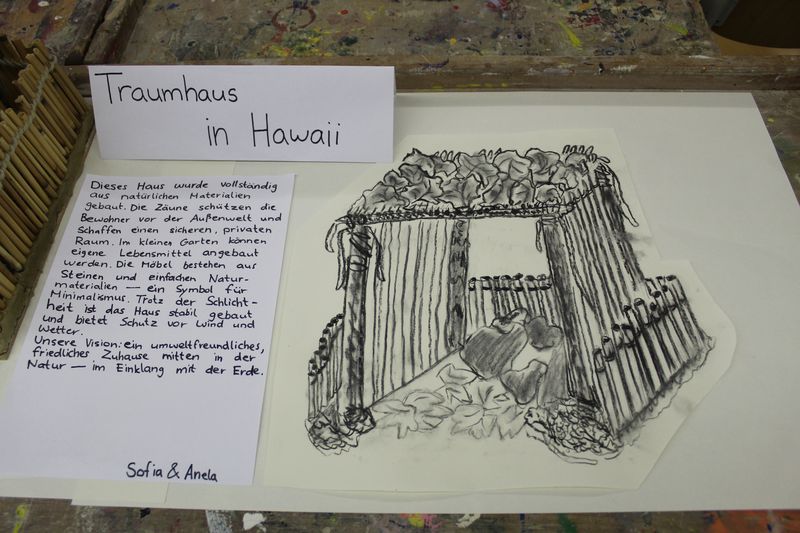 Traumhaus
in Hawaii
Dieses Haus wurde vollständig
aus natürlichen Materialien
gebaut. Die Zäune schützen die
Bewohner vor der Außenwelt und
Schaffen einen sicheren, privaten
Raum. Im kleinen Garten können
eigene Lebensmittel angebaut
werden. Die Möbel bestehen aus
Steinen und einfachen Natur-
materialien — ein Symbol für
Minimalismus. Trotz der Schlicht-
heit ist das Haus stabil gebaut
und bietet Schutz vor Wind und
Wetter.
Unsere Vision: ein umweltfreundliches,
friedliches Zuhause mitten in der
Natur — im Einklang mit der Erde.
Sofia & Anela